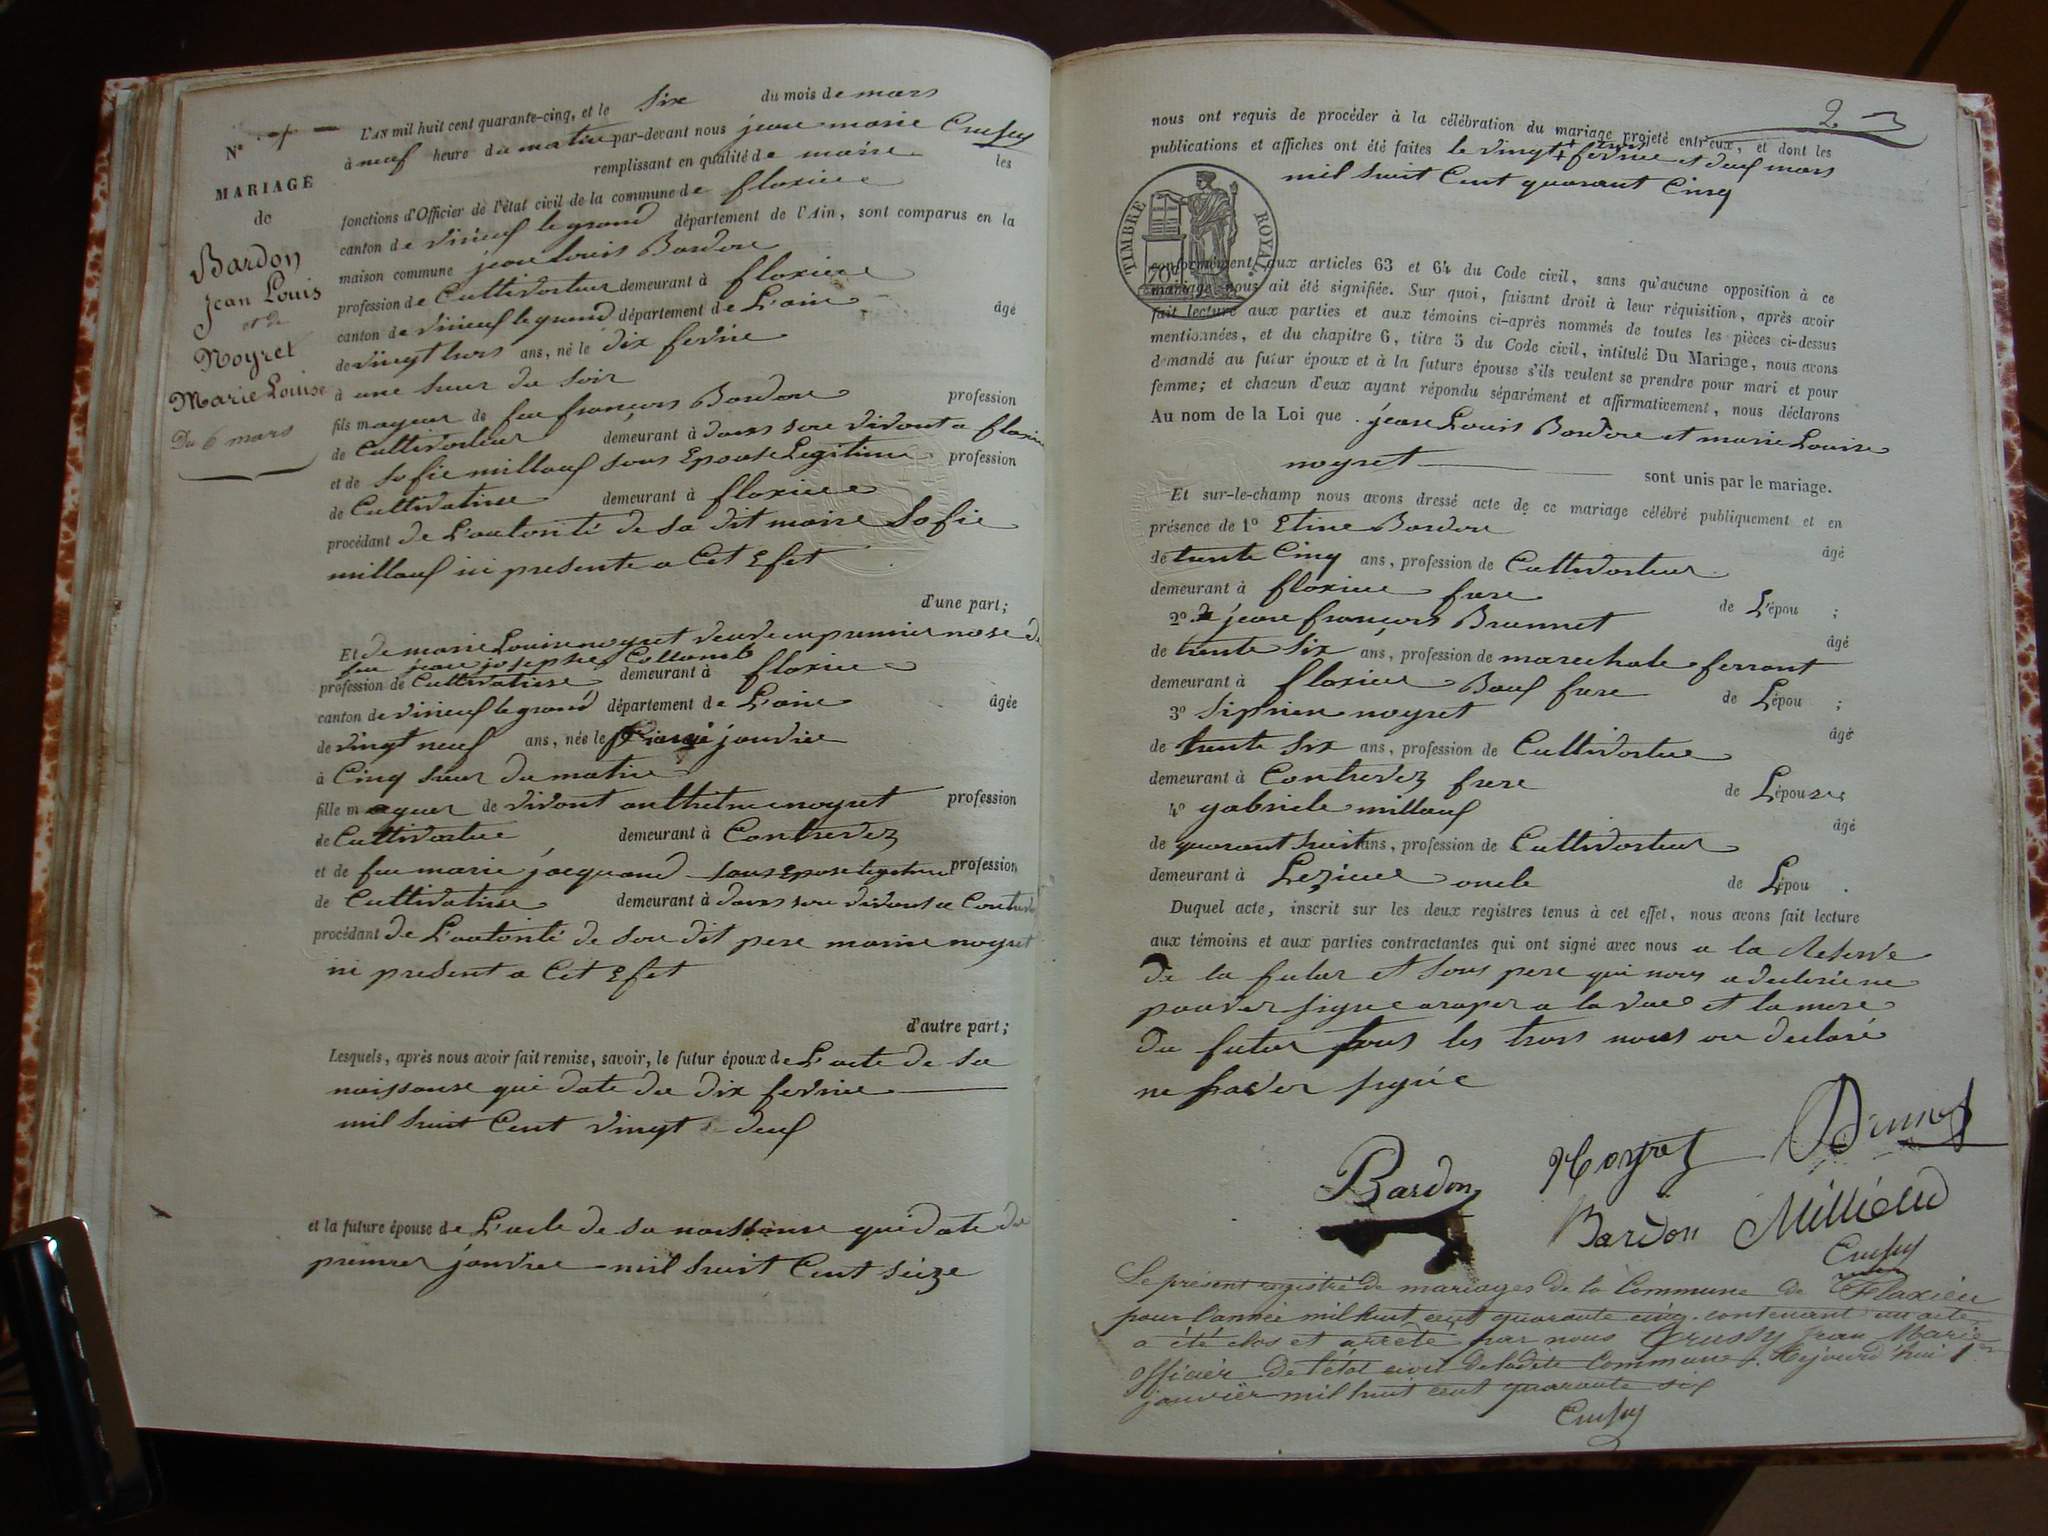 N° 1
MARIAGE
de
Bardon
Jean Louis
et de
Noyret
Marie Louise
Du 6 mars
L'AN mil huit cent quarante-cinq, et le six du mois de mars
à neuf heure du matin par-devant nous jean marie Crussy
remplissant en qualité de maire les
fonctions d'Officier de l'état civil de la commune de flaxieu
canton de virieuf le grand département de l'Ain, sont comparus en la
maison commune jean louis Bardon
profession de Cultivateur demeurant à flaxieu
canton de virieuf le grand département de L'ain âgé
de vingt trois ans, né le dix fevrie
à une heur du soir
fils mayeur de feu françois Bardon profession
de Cultivateur demeurant à dans son vivant a flaxieu
et de sofie millauf sons Epouse Legitime profession
de Cultivatrise demeurant à flaxieu
procédant de L'autorité de sa dit maire Sofie
millauf ici presente a Cet Efet
d'une part;
Et de marie Louise noyret veuve en premier nose de
feu jean josephe Collomb
profession de Cultivatrise demeurant à flaxieu
canton de virieuf le grand département de L'ain âgée
de vingt neuf ans, née le janvie
à Cinq heur du matin
fille mayeur de vivant anthelme noyret profession
de Cultivateur demeurant à Contrevez
et de feu marie jacquand sous Epose legitime profession
de Cultivatrise demeurant à dans son vivant a Contrevez
procédant de L'autorité de son dit pere marie noyret
ici present a Cet Efet
d'autre part;
Lesquels, après nous avoir fait remise, savoir, le futur époux de L'acte de sa
naissanse qui date du dix fevrie
mil huit Cent vingt deuf
et la future épouse de L'acte de sa naissanse qui date du
premier janvier mil huit Cent seize
2
nous ont requis de procéder à la célébration du mariage projeté entr'eux, et dont les
publications et affiches ont été faites le vingt trois fevrie et deuf mars
mil huit Cent quarant Cinq
TIMBRE ROYAL
70
conformément aux articles 63 et 64 du Code civil, sans qu'aucune opposition à ce
mariage nous ait été signifiée. Sur quoi, faisant droit à leur réquisition, après avoir
fait lecture aux parties et aux témoins ci-après nommés de toutes les pièces ci-dessus
mentionnées, et du chapitre 6, titre 5 du Code civil, intitulé Du Mariage, nous avons
demandé au futur époux et à la future épouse s'ils veulent se prendre pour mari et pour
femme; et chacun d'eux ayant répondu séparément et affirmativement, nous déclarons
Au nom de la Loi que jean Louis Bardon et marie Louise
noyret sont unis par le mariage.
Et sur-le-champ nous avons dressé acte de ce mariage célébré publiquement et en
présence de 1° Etine Bardon
âgé
de trente Cinq ans, profession de Cultivateur
demeurant à flaxieu frere de L'épou ;
2° jean françois Brunnet
âgé
de trente six ans, profession de marechale ferrant
demeurant à flaxieu Bauf frere de Lépou ;
3° Siprien noyret
âgé
de trente six ans, profession de Cultivateur
demeurant à Contrevez frere de Lépouse;
4° gabriele millauf
âgé
de quarant huit ans, profession de Cultivateur
demeurant à Lezieue oncle de Lépou .
Duquel acte, inscrit sur les deux registres tenus à cet effet, nous avons fait lecture
aux témoins et aux parties contractantes qui ont signé avec nous a la Reserve
de la futur et sous pere qui nous a declarié ne
pauver signe araper a la vue et la mere
du futur tous les trois nous on declaré
ne saver signée
Bardon Noyret Brunet
Bardon Millieud
Crussy
Le présent registre de mariages de la Commune de Flaxieu
pour l'année mil huit cent quarante cinq contenant un acte
a été clos et arrêté par nous Crussy Jean Marie
officier de l'état civil de ladite Commune. Aujourd'hui 1er
janvier mil huit cent quarante six
Crussy